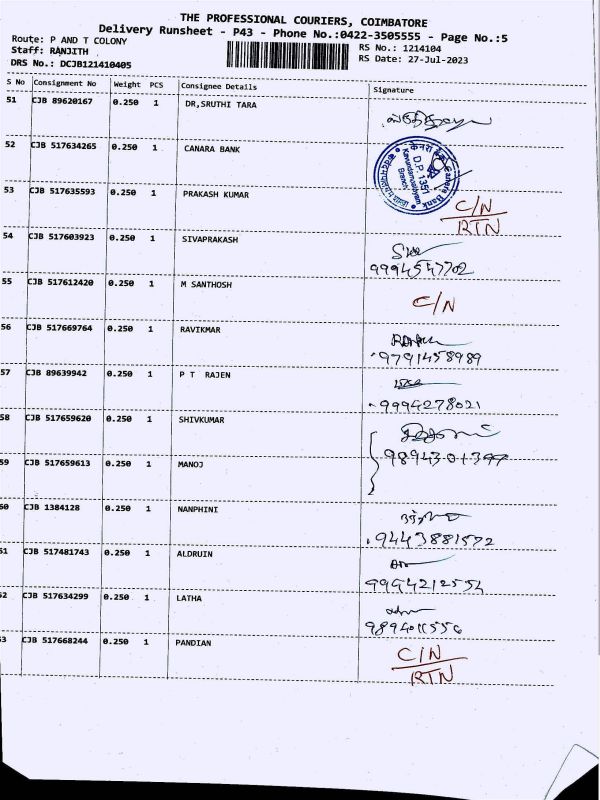 THE PROFESSIONAL COURIERS, COIMBATORE
Delivery Runsheet - P43 - Phone No.:0422-3505555 - Page No.:5
Route: P AND T COLONY
Staff: RANJITH
DRS No.: DCJB121410405
RS No.: 1214104
RS Date: 27-Jul-2023
S No Consignment No Weight PCS Consignee Details Signature
51 CJB 89620167 0.250 1 DR,SRUTHI TARA
52 CJB 517634265 0.250 1 CANARA BANK
D.P. 1351
Branch
Canara Bank
53 CJB 517635593 0.250 1 PRAKASH KUMAR C/N
RTN
54 CJB 517603923 0.250 1 SIVAPRAKASH
9994547702
55 CJB 517612420 0.250 1 M SANTHOSH C/N
56 CJB 517669764 0.250 1 RAVIKMAR
9791458989
57 CJB 89639942 0.250 1 P T RAJEN
9994278021
58 CJB 517659620 0.250 1 SHIVKUMAR
59 CJB 517659613 0.250 1 MANOJ
60 CJB 1384128 0.250 1 NANPHINI
9443881572
51 CJB 517481743 0.250 1 ALDRUIN
9994212554
52 CJB 517634299 0.250 1 LATHA
9894011556
53 CJB 517668244 0.250 1 PANDIAN C/N
RTN